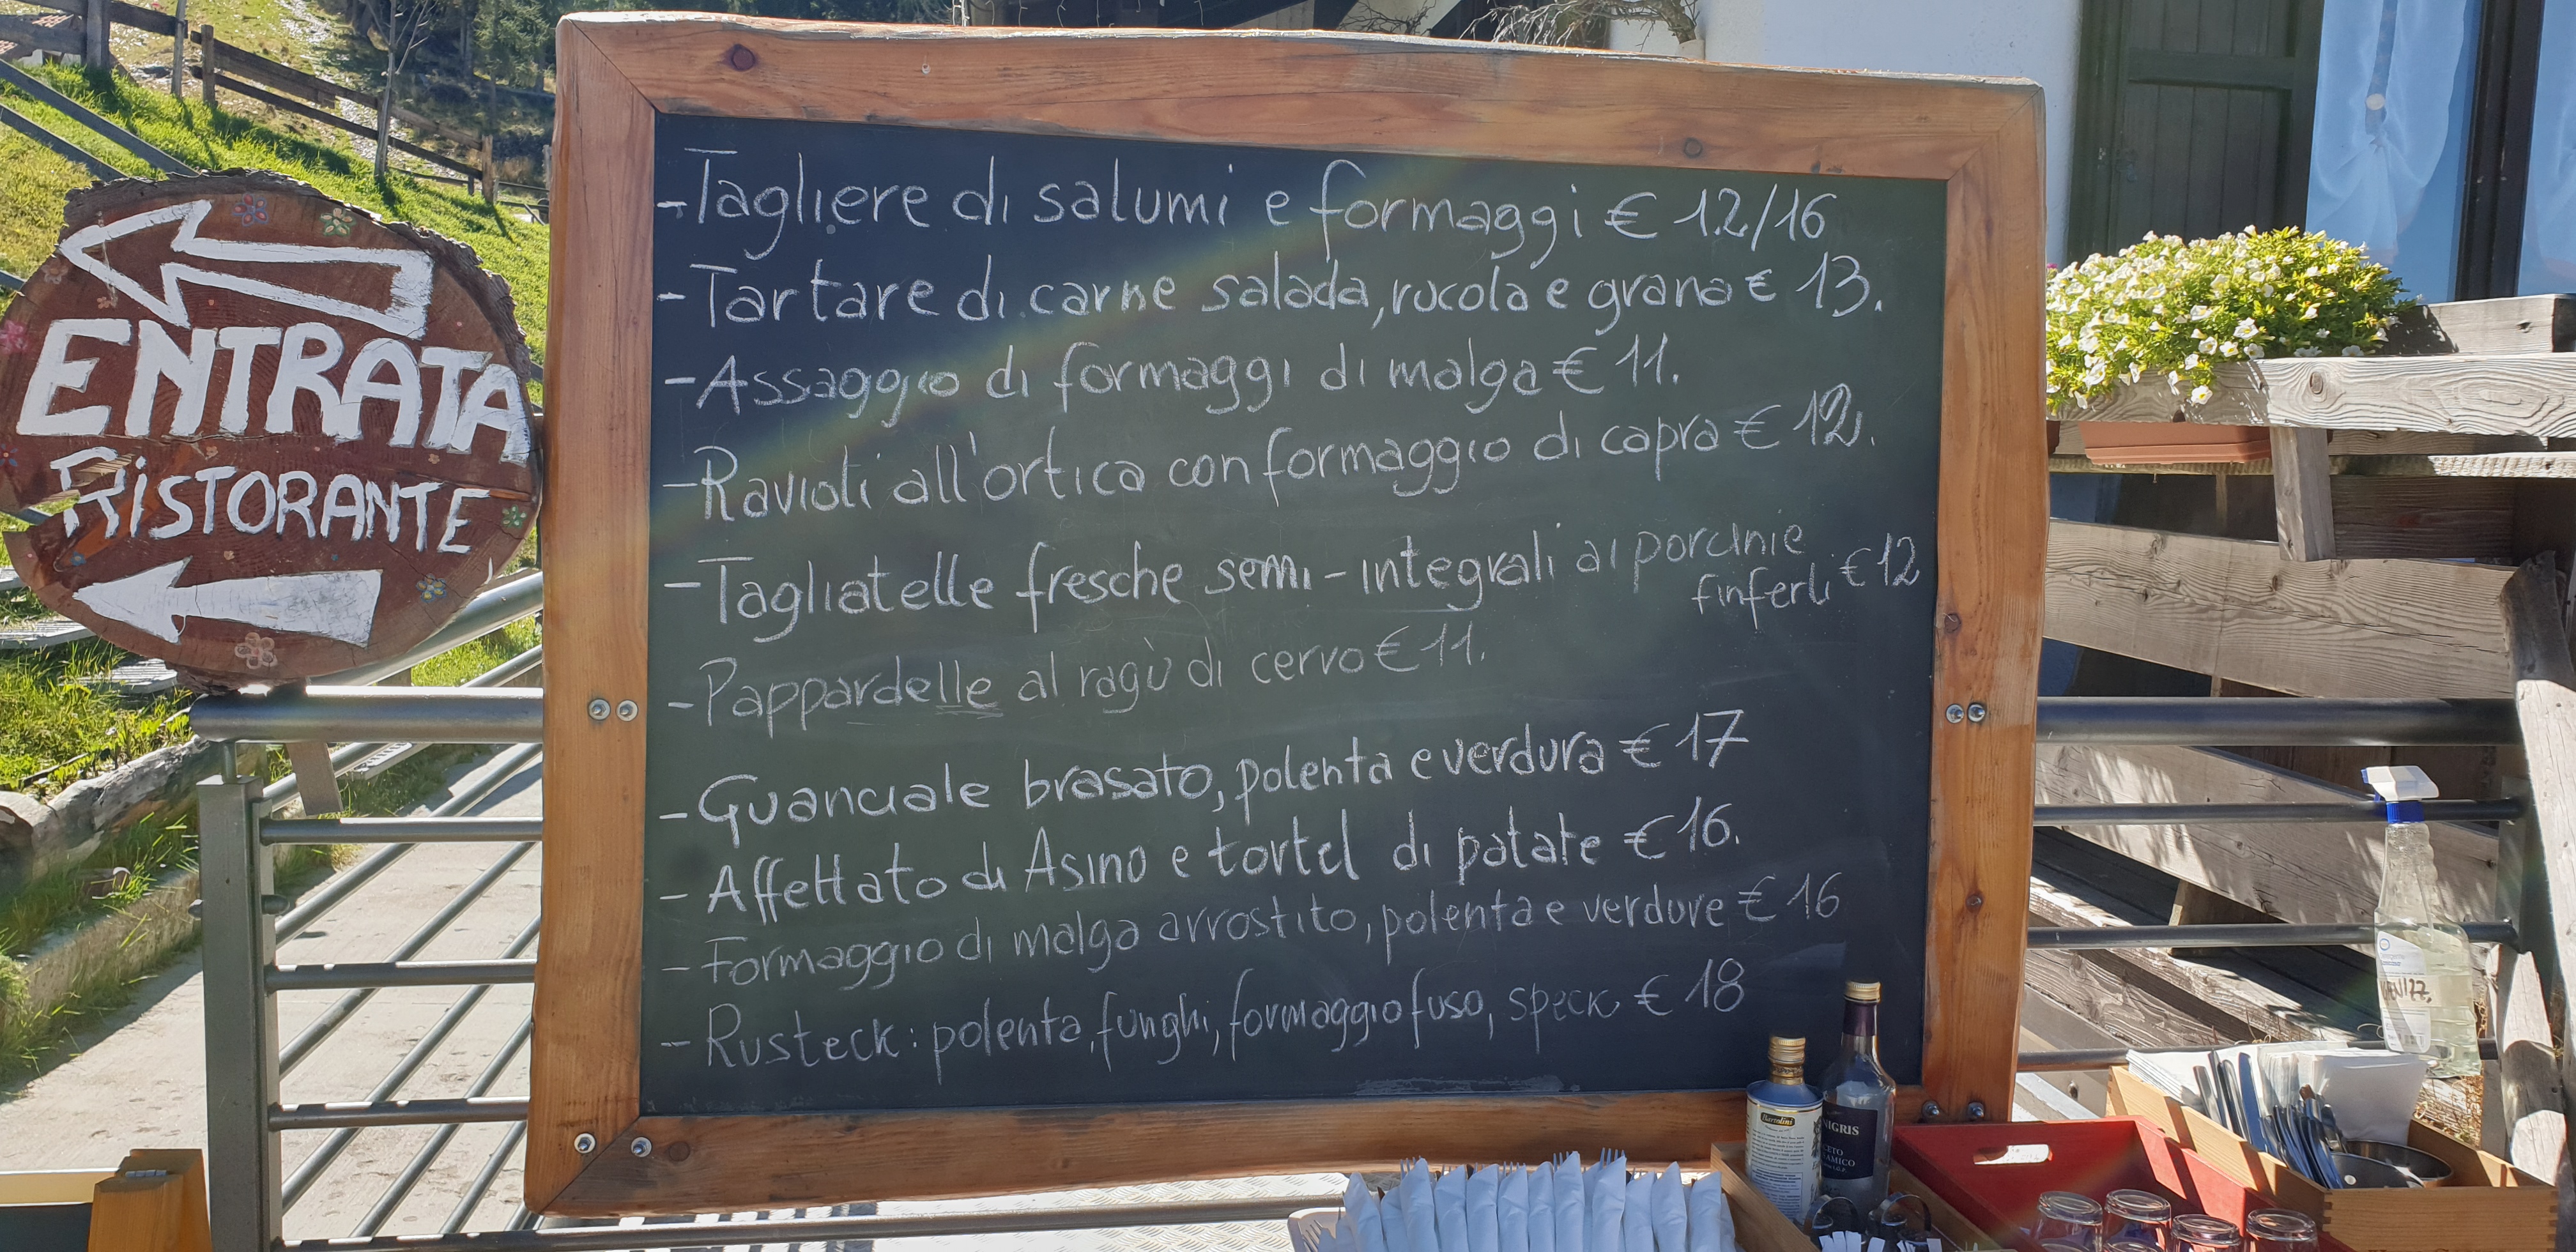 ENTRATA
RISTORANTE
-Tagliere di salumi e formaggi € 12/16
-Tartare di carne salada, rucola e grana € 13.
-Assaggio di formaggi di malga € 11.
-Ravioli all'ortica con formaggio di capra € 12.
-Tagliatelle fresche semi-integrali ai porcini e
finferli € 12
-Pappardelle al ragù di cervo € 11.
-Guanciale brasato, polenta e verdura € 17
-Affettato di Asino e tortel di patate € 16.
-Formaggio di malga arrostito, polenta e verdure € 16
-Rusteck: polenta, funghi, formaggio fuso, speck € 18
Bartolini
NIGRIS
CETO
AMICO